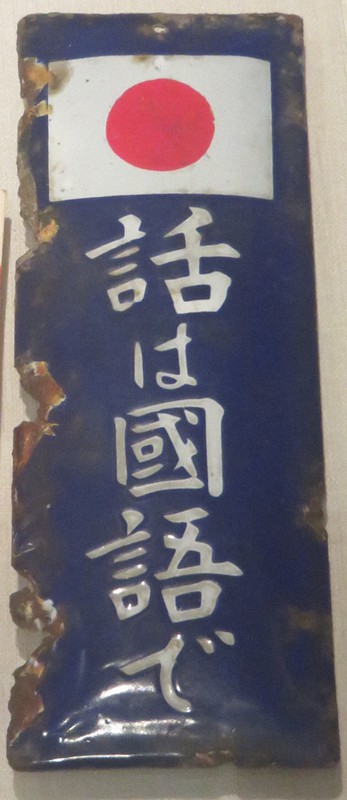 話は國語で